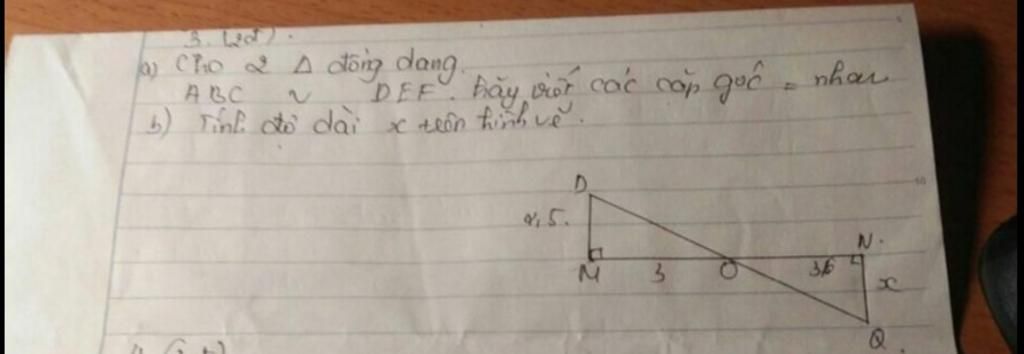 3. (2đ).
a) Cho 2 Δ đồng dạng.
ABC ~ DEF. Hãy viết các cặp góc = nhau
b) Tính độ dài x trên hình vẽ.
D
2,5.
N.
M 3 O 3,6
x
Q